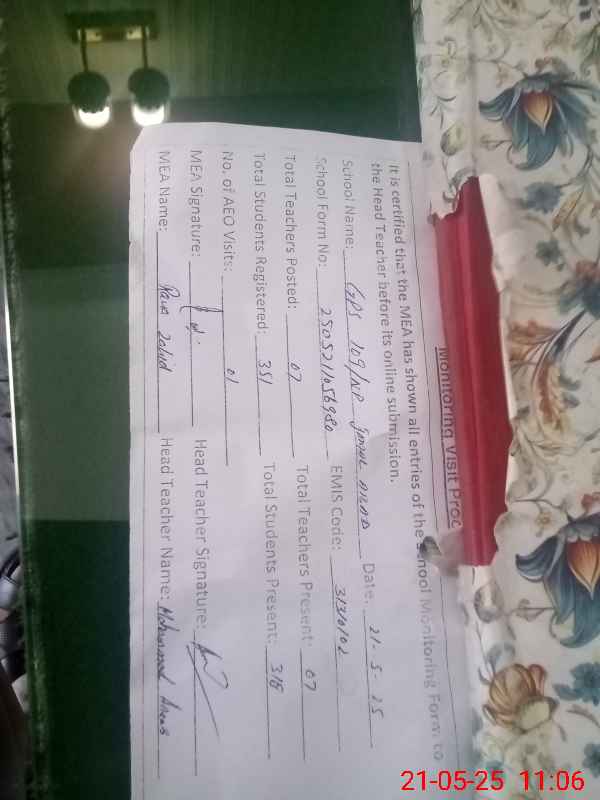 Monitoring Visit Proc
It is certified that the MEA has shown all entries of the School Monitoring Form to
the Head Teacher before its online submission.
School Name: GPS 109/NP Date: 21-5-25
School Form No: 2505211056980 EMIS Code: 3130102
Total Teachers Posted: 07 Total Teachers Present: 07
Total Students Registered: 351 Total Students Present:
No. of AEO Visits: 01
MEA Signature: Head Teacher Signature:
MEA Name: Zahid Head Teacher Name: Mohammad
21-05-25 11:06